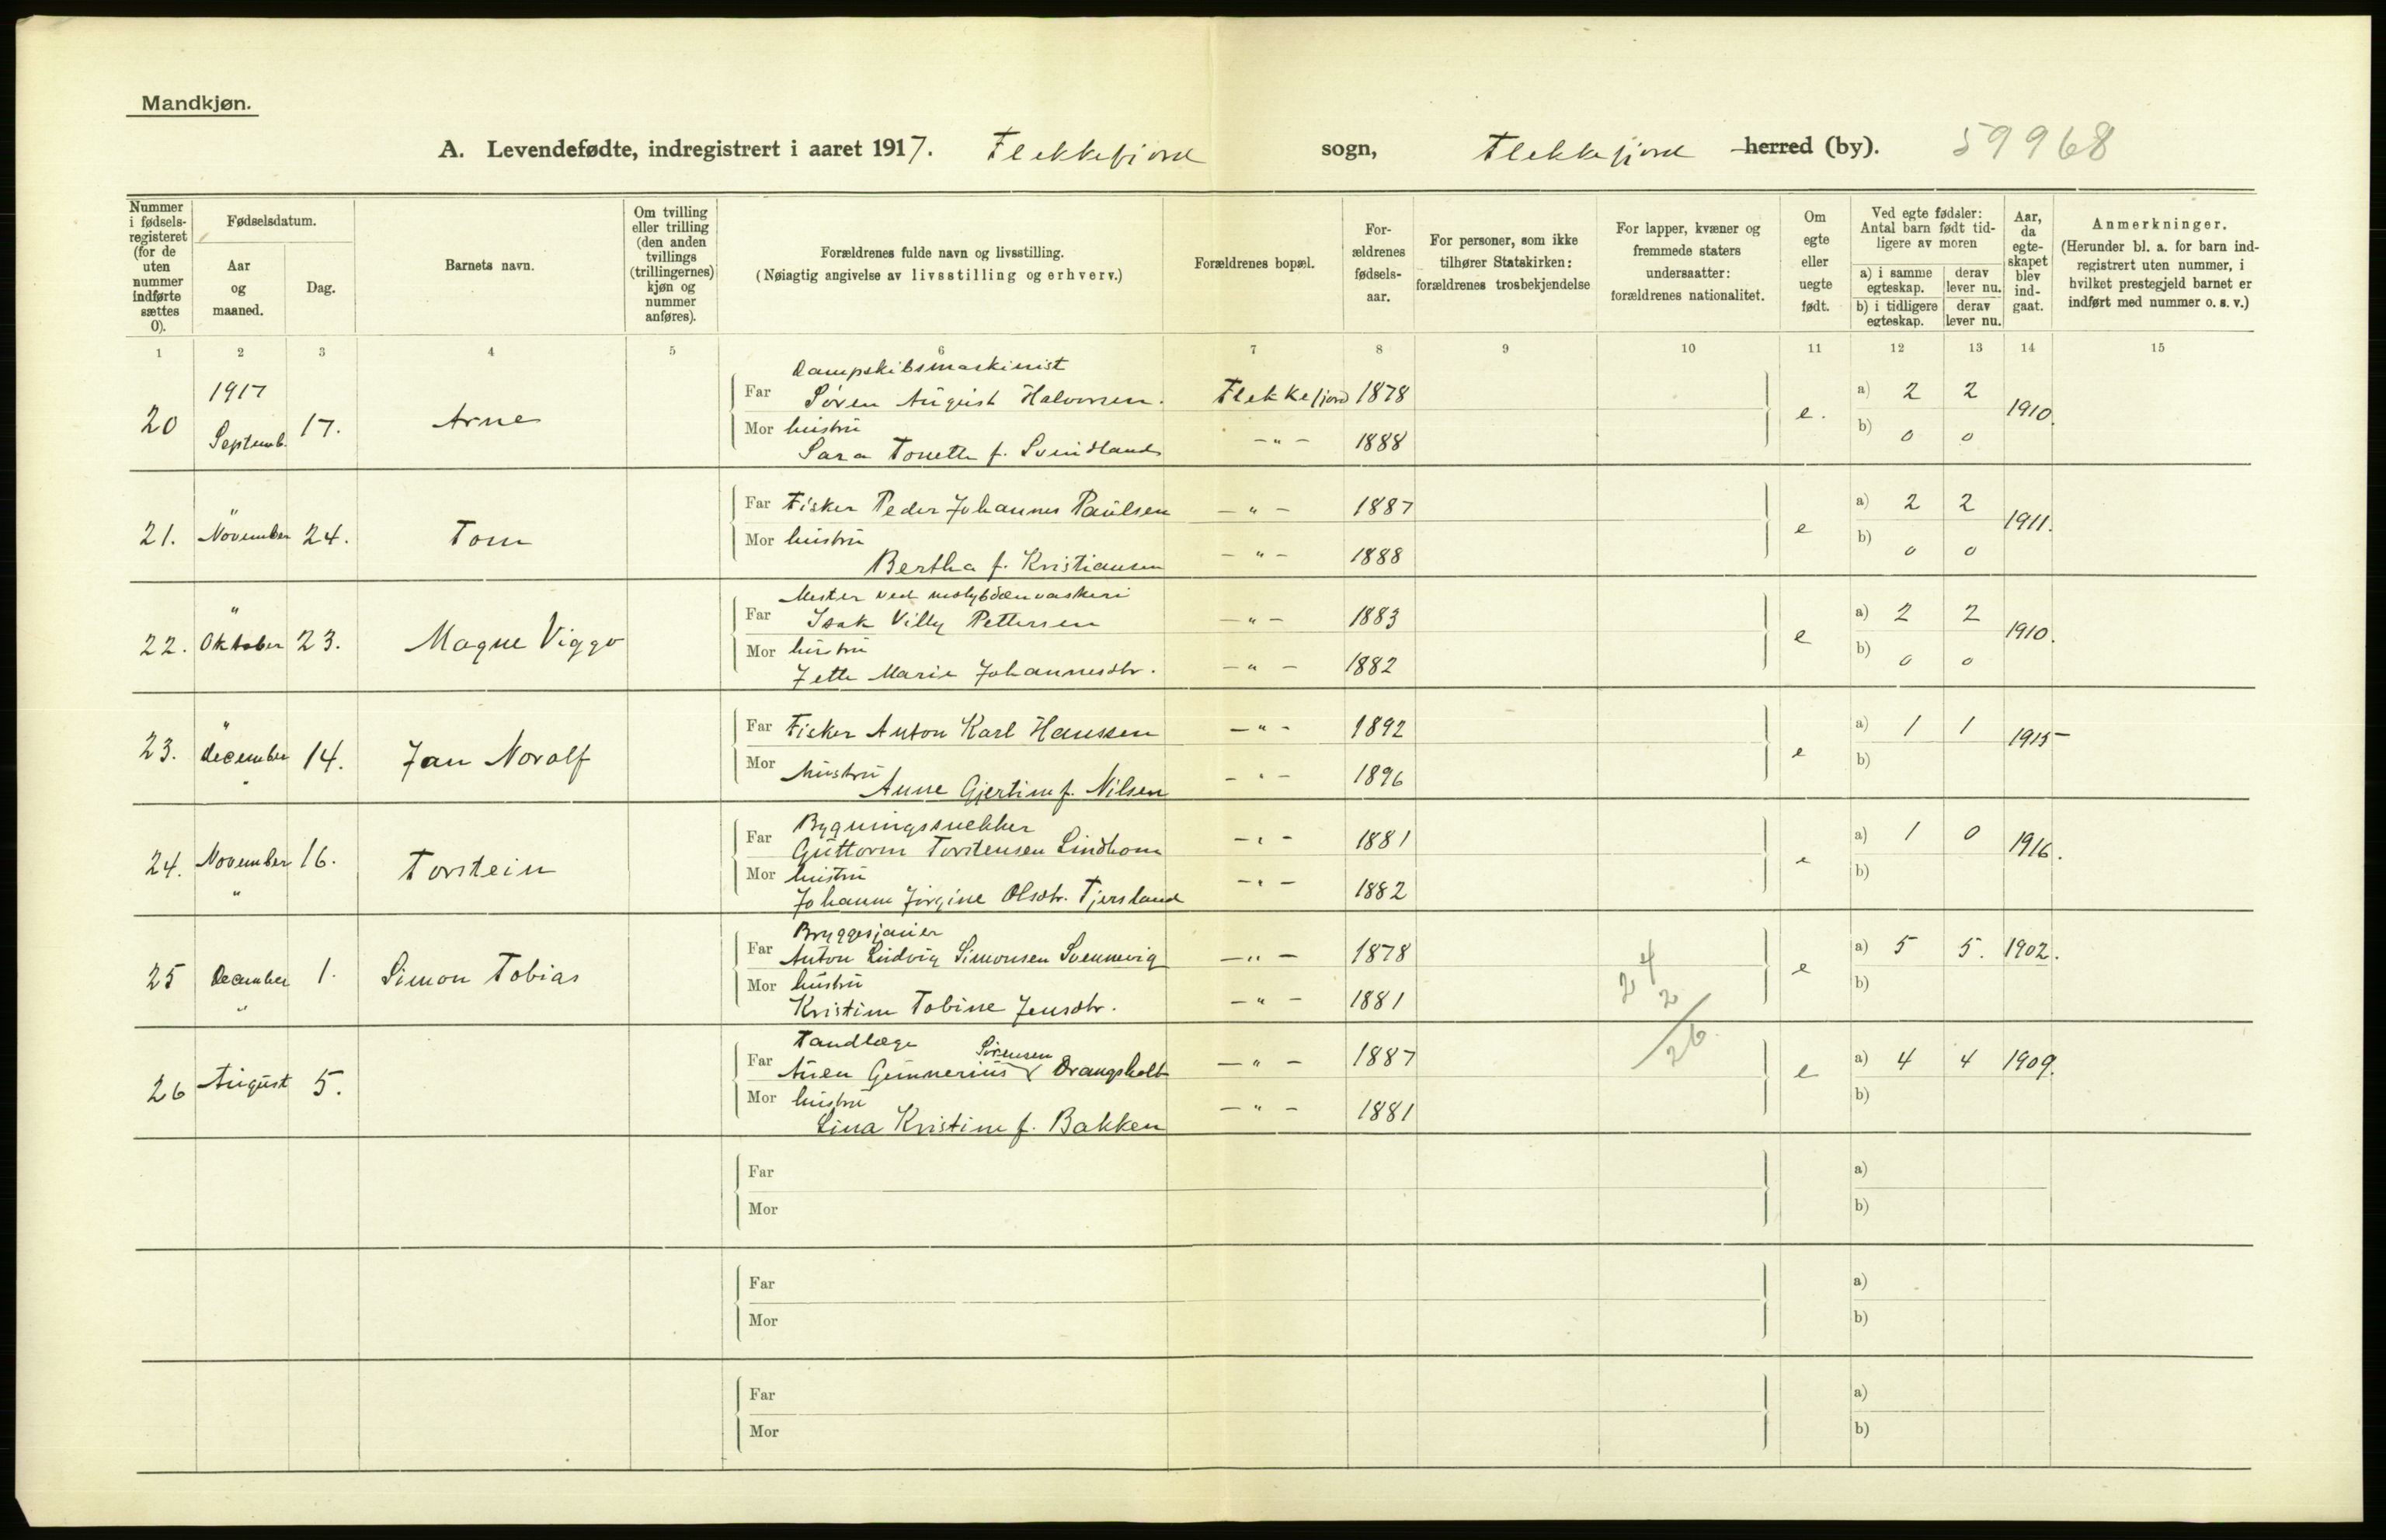 Mandkjøn.
A. Levendefødte, indregistrert i aaret 1917. Flekkefjord sogn, Flekkefjord herred (by). 59968
Nummer i fødsels-registeret (for de uten nummer indførte sættes 0).
Fødselsdatum.
Aar og maaned.
Dag.
Barnets navn.
Om tvilling eller trilling (den anden tvillings (trillingernes) kjøn og nummer anføres).
Forældrenes fulde navn og livsstilling.
(Nøiagtig angivelse av livsstilling og erhverv.)
Forældrenes bopæl.
For-ældrenes fødsels-aar.
For personer, som ikke tilhører Statskirken: forældrenes trosbekjendelse
For lapper, kvæner og fremmede staters undersaatter: forældrenes nationalitet.
Om egte eller uegte født.
Ved egte fødsler: Antal barn født tid-ligere av moren
a) i samme egteskap.
derav lever nu.
b) i tidligere egteskap.
derav lever nu.
Aar, da egte-skapet blev ind-gaat.
Anmerkninger.
(Herunder bl. a. for barn ind-registrert uten nummer, i hvilket prestegjeld barnet er indført med nummer o. s. v.)
1 2 3 4 5 6 7 8 9 10 11 12 13 14 15
Dampskibsmaskinist
1917 Far Søren August Halvorsen. Flekkefjord 1878 a) 2 2
20 Septemb. 17. Arne e. 1910.
Mor hustru b) 0 0
Sara Tonette f. Svindland -"- 1888
" Far Fisker Peder Johannes Paulsen -"- 1887 a) 2 2
21. November 24. Tom e 1911.
Mor hustru b) 0 0
Bertha f. Kristiansen -"- 1888
Mester ved molybdænvaskeri
" Far Isak Villy Pettersen -"- 1883 a) 2 2
22. Oktober 23. Magne Viggo e 1910.
Mor hustru b) 0 0
Jette Marie Johannesdtr. -"- 1882
" Far Fisker Anton Karl Hanssen -"- 1892 a) 1 1
23. December 14. Jan Noralf e 1915
Mor hustru b)
Anne Gjertine f. Nilsen -"- 1896
Bygningssnekker
Far Guttorm Torstensen Lindhom -"- 1881 a) 1 0
24. November 16. Torstein e 1916.
" Mor hustru b)
Johanne Jørgine Olsdtr. Tjersland -"- 1882
Bryggesjauer
Far Anton Ludvig Simonsen Svennevig -"- 1878 a) 5 5. 1902.
25 December 1. Simon Tobias 24 e
" Mor hustru 2 b)
Kristine Tobine Jensdtr. -"- 1881
26
Tandlæge
Sørensen
Far Auen Gunnerius Drangsholt -"- 1887 a) 4 4 1909.
26 August 5. e
Mor hustru b)
Lina Kristine f. Bakken -"- 1881
Far a)
Mor b)
Far a)
Mor b)
Far a)
Mor b)